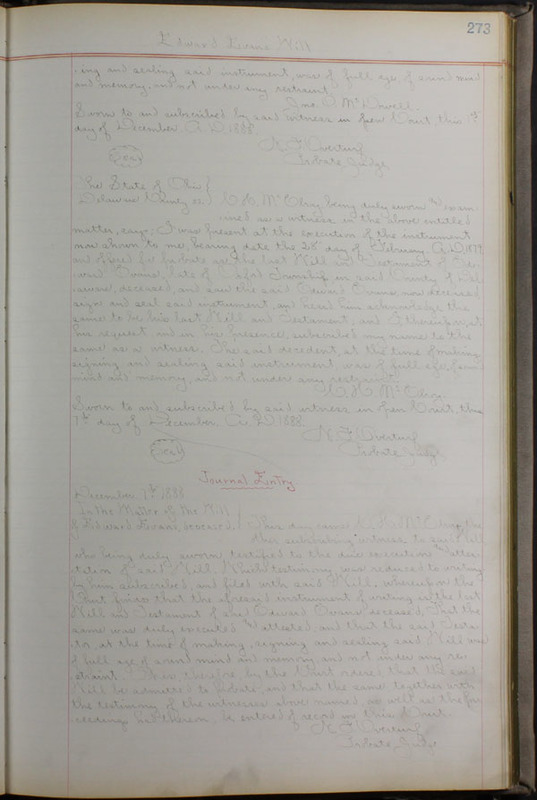 273
Edward Evans Will
ing and sealing said instrument, was of full age, of sound mind
and memory, and not under any restraint.
Jno. D. McDowell.
Sworn to and subscribed by said witness in Open Court, this
day of December A.D. 1888.
Probate Judge
Seal
The State of Ohio
Delaware County ss. being duly sworn and exam-
ined as a witness in the above entitled
matter, says: I was present at the execution of the instrument
now shown to me, bearing date the 28th day of February A.D. 1879
and offered for probate as the last Will and Testament of Ed-
ward Evans, late of Township in said County of Del-
aware, deceased, and saw the said Edward Evans, now deceased
sign and seal said instrument, and heard him acknowledge the
same to be his last Will and Testament, and I thereupon, at
his request, and in his presence, subscribed my name to the
same as a witness. The said decedent, at the time of making,
signing and sealing said instrument, was of full age, of sound
mind and memory, and not under any restraint.
Sworn to and subscribed by said witness in Open Court, this
7th day of December A.D. 1888.
Probate Judge
Seal
Journal Entry
December 7th 1888
In the Matter of the Will
of Edward Evans, deceased. This day came
the subscribing witness to said will
who being duly sworn, testified to the due execution and attes-
tation of said Will. Which testimony was reduced to writing
by him subscribed, and filed with said Will. Whereupon the
Court finds that the aforesaid instrument of writing is the last
Will and Testament of said Edward Evans deceased, that the
same was duly executed and attested, and that the said Testa-
tor, at the time of making, signing and sealing said Will was
of full age of sound mind and memory, and not under any re-
straint. It is therefore by the Court ordered that the said
Will be admitted to Probate, and that the same together with
the testimony of the witnesses above named, as well as the pro-
ceedings had thereon, be entered of record in this Court.
Probate Judge